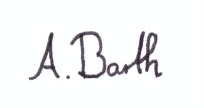 A. Barth